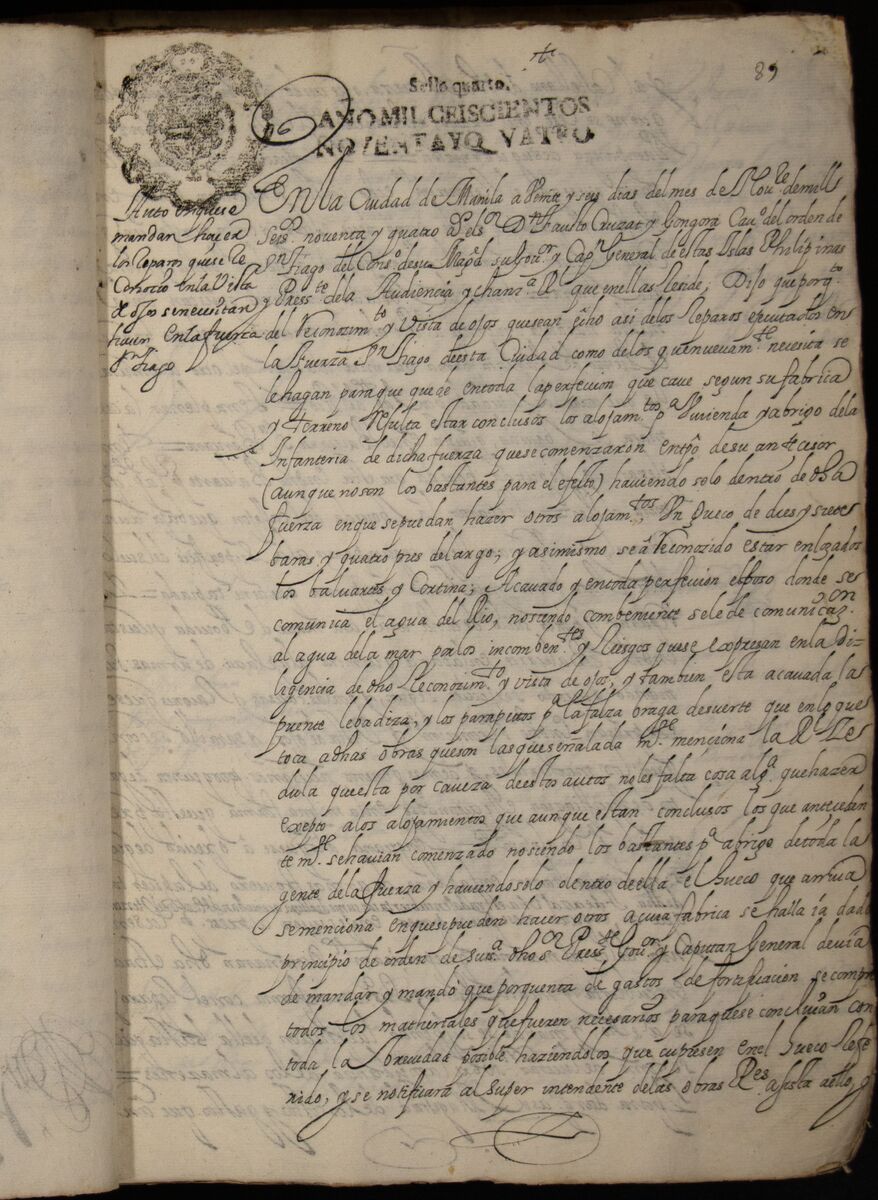 89
Sello quarto.
AÑO MIL CEISCIENTOS
NOVENTAYQVATRO
Auto enquese
mandan haçer
los reparos quese re
conocio en la Vista
de ojos se necesitan
haçer en la fuerça
Sn Tiago
En la Ciudad de Manila a Veinte y seis dias del mes de Nou.re de mill y
Seis.os noventa y quatro el s.or D.n Fausto Cruzat y Gongora Cau.o del orden de
Sn Tiago del Cons.o de su Mag.d su Gou.or y Cap.n General de estas Islas Philipinas
y Press.te dela Audiencia y chanz.a R.l que en ellas Reside; Dijo que por q.to
del Reconozim.to y Vista de ojos quesean fho asi delos Reparos executados en
la Fuerza Sn Tiago de esta Ciudad como delos que nuevam.te necesita se
le hagan paraque quede entoda la perfecion que cave segun su fabrica
y terreno Resulta estar conclusos los alojam.tos p.a Vivienda y abrigo dela
Infanteria de dicha fuerza quese comenzaron en tp̃o de su antecesor
(aunque no son los bastantes para el efecto) haviendo solo dentro de dha
fuerza enque se puedan hazer otros alojam.tos; Un Gueco de dies y siete
baras y quatro pies de largo; y asimismo se â Reconozido estar enlozados
los baluartes y Cortina; Acavado y entoda perfecion el foso donde se
comunica el agua del Rio, no siendo combeniente sele de comunicaz.on
al agua dela mar por los incomben.tes y Riesgos quese expresan en la di-
ligencia de dho Reconozim.to y vista de ojos, y tambien esta acavada las
puente lebadiza, y los parapetos p.a la falza braga de suerte que en lo que
toca a dhas obras que son las que señalada m.te menciona la R.l Ze
dula que esta por caveza de estos autos no les falta cosa alg.a que hazer
exepto a los alojamientos que aunque estan conclusos los que anteceden
te m.te se havian comenzado no siendo los bastantes p.a abrigo de toda la
gente dela fuerza y haviendo solo dentro de ella el hueco que arriua
se menciona en que se pueden hacer otros a cuia fabrica se halla ia dado
principio de orden de su s.a dho s.or Press.te Gou.or y Capitan General devia
de mandar y mandó que por quenta de gastos de fortificacion se compren
todos los matheriales que fueren necesarios para que se concluian con
toda la brevedad posible haziendo los que cupiesen en el hueco Refe
rido, y se notificará al super intendente delas obras R.es asista a ello, y